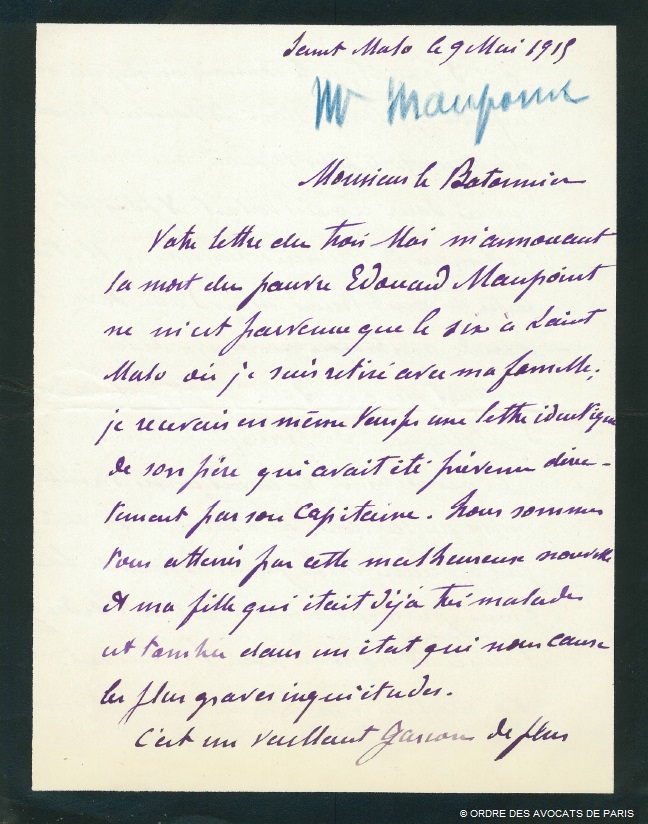 Saint Malo le 9 Mai 1915
Mr Maupoint
Monsieur le Batonnier
Votre lettre du trois Mai m'annonçant
la mort du pauvre Edouard Maupoint
ne m'est parvenue que le six à Saint
Malo où je suis retiré avec ma famille;
je recevais en même temps une lettre identique
de son père qui avait été prévenu direc-
tement par son Capitaine. Nous sommes
tous atterrés par cette malheureuse nouvelle
et ma fille qui était déjà très malade
est tombée dans un état qui nous cause
les plus graves inquiétudes.
C'est un vaillant garcon de plus
© ORDRE DES AVOCATS DE PARIS